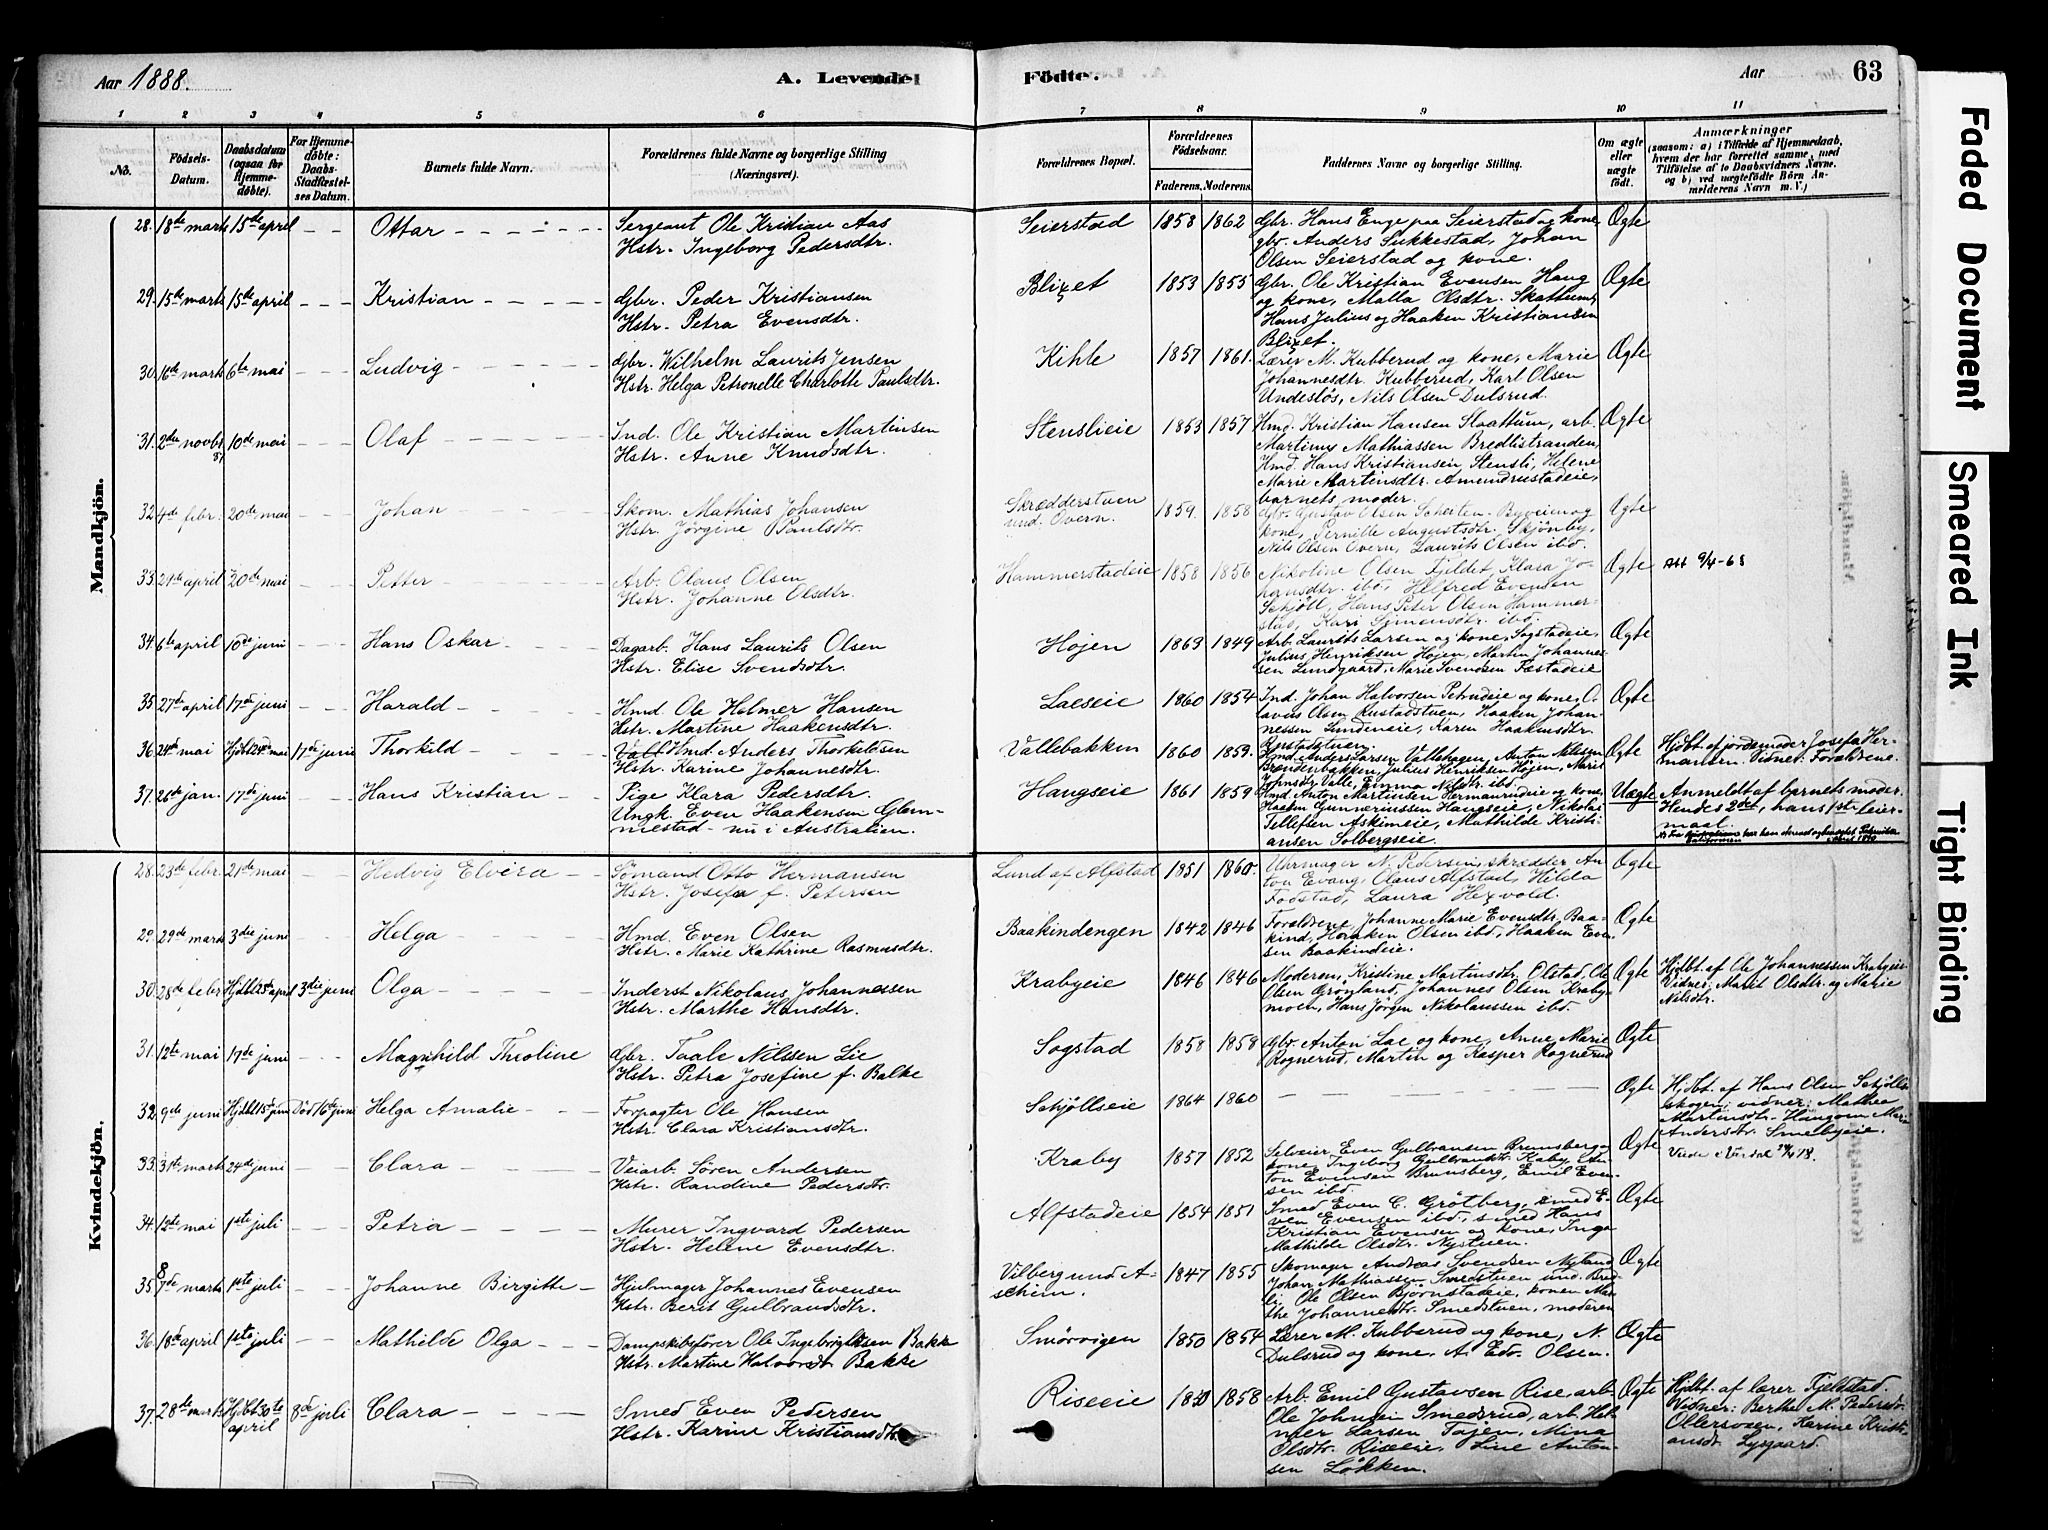 Aar 1888.
A. Levende
Födte.
Aar
63
1 2 3 4 5 6 7 8 9 10 11
No.
Födsels-Datum.
Daabsdatum (ogsaa för Hjemmedöbte).
For Hjemmedöbte: Daabs-Stadfæstelses Datum.
Barnets fulde Navn.
Forældrenes fulde Navne og borgerlige Stilling (Næringsvei).
Forældrenes Bopæl.
Forældrenes Födselsaar.
Faderens. Moderens.
Faddernes Navne og borgerlige Stilling.
Om ægte eller uægte födt.
Anmærkninger
(saasom: a) i Tilfælde af Hjemmedaab, hvem der har forrettet samme, med Tilföielse af to Daabsvidners Navne. og b) ved uægtefödte Börn Anmelderens Navn m. V.)
Mandkjön.
28. 18de marts 15de april - - Ottar - - - - Sergeant Ole Kristian Aas
Hstr. Ingeborg Pedersdtr.
Seierstad 1858 1862 Gbr. Hans Enge paa Seierstad og kone,
gbr. Anders Sukkestad, Johan
Olsen Seierstad og kone.
Ægte
29. 15de marts 15de april - - Kristian - - - - Gbr. Peder Kristiansen
Hstr. Petra Evensdtr.
Blixet 1853 1855 Gbr. Ole Kristian Evensen Haug
og kone, Malla Olsdtr. Skattum,
Hans Julius og Haaken Kristiansen
Blixet.
Ægte
30. 16de marts 6te mai - - Ludvig - - - - Gbr. Wilhelm Laurits Jensen
Hstr. Helga Petronelle Charlotte Paulsdtr.
Kihle 1857 1861. Lærer M. Kubberud og kone, Marie
Johannesdtr. Kubberud, Karl Olsen
Undesløs, Nils Olsen Dulsrud.
Ægte
31. 2den novbr 87 10de mai - - Olaf - - - - Ind. Ole Kristian Martinsen
Hstr. Anne Knudsdtr.
Stenslieie 1853 1857 Hmd. Kristian Hansen Slaattum, arb.
Martinus Mathiassen Bredlistranden,
Hmd. Hans Kristiansen Stensli, Helene
Marie Martinsdtr. Amundrustadeie,
barnets moder.
Ægte
32. 4de febr. 20de mai - - Johan - - - Skom. Mathias Johansen
Hstr. Jørgine Paulsdtr.
Skrædderstuen
und. Overn.
1859. 1858 Gbr. Gustav Olsen
kone, Pernille Augustsdtr. Skjønby,
Nils Olsen Overn, Laurits Olsen ibd.
Ægte
33. 21de april 20de mai - - Petter - - - Arb. Olaus Olsen
Hstr. Johanne Olsdtr.
Hammerstadeie 1858 1856 Nikoline Olsen Fjeldet, Klara Jo-
hansdtr. ibd., Helfred Evensen
Schjöll, Hans Peter Olsen Hammer-
stad, Kari Simensdtr. ibd.
Ægte Att 9/4-68
34. 6te april 10de juni - - Hans Oskar - - - Dagarb. Hans Laurits Olsen
Hstr. Elise Svendsdtr.
Højen 1863 1849 Arb. Laurits Larsen og kone, Sogstadeie,
Julius Henriksen Højen, Martin Johannes-
sen Lundgaard, Marie Svendsen Fæstadeie
Ægte
35. 27de april 17de juni - - Harald - - - Hmd. Ole Helmer Hansen
Hstr. Martine Haakensdtr.
Laeseie 1860 1854 Ind. Johan Halvorsen Petrudeie og kone, O-
tavius Olsen Rustadstuen, Haaken Johan-
nessen Lundeneie, Karen Haakensdtr.
Rustadstuen.
Ægte
36. 24de mai Hjdbt 24de mai 17de juni Thorkild - - - Hmd. Anders Thorkildsen
Hstr. Karine Johannesdtr.
Vallebakken 1860 1859. Hmd. Anders Larsen Vallehagen, Anton Nilsen
Brendenbakken, Julius Henriksen Højen, Maris
Johnsdtr. Valle, Emma Nilsdtr. ibd.
Ægte Hjdbt. af jordemoder Josefa Her-
mansen. Vidner: Forældrene.
37. 26de jan. 17de juni - - Hans Kristian - - Pige Klara Pedersdtr.
Ungk. Even Haakensen Glem-
mestad - nu i Australien.
Haugseie 1861 1859 Hmd. Anton Martinsen Hermanrudeie og kone,
Haaken Gunnerinssen Haugseie, Nikolai
Tellefsen Askimeie, Mathilde Kristi-
ansen Solbergseie.
Uægte Anmeldt af barnets moder.
Hendes 2det, hans 1ste leier-
maal.
Kvindekjön.
28. 23de febr. 21de mai - - Hedvig Elvira - - Sömand Otto Hermansen
Hstr. Josefa f. Petersen
Lund af Alfstad 1851 1860. Uhrmager N. Pedersen, skrædder An-
ton Evang, Olaus Alfstad, Hilda
Fodstad, Laura Hexvold.
Ægte
29. 29de marts 3die juni - - Helga - - - Hmd. Even Olsen
Hstr. Marie Kathrine Rasmusdtr.
Baakindengen 1842 1846 Forældrene, Johanne Marie Evensdtr. Baa-
kind, Haaken Olsen ibd., Haaken Even-
sen Baakindeie.
Ægte
30. 28de febr Hjdbt 25de april 3die juni Olga - - - Inderst Nikolaus Johannessen
Hstr. Marthe Hansdtr.
Krabyeie 1846 1846 Moderen, Kristine Martinsdtr. Olstad, Ole
Olsen Grönland, Johannes Olsen Kraby-
moen, Hans Jörgen Nikolaussen ibd.
Ægte Hjdbt. af Ole Johannessen Krabyeie
Vidner: Marit Olsdtr. og Marie
Nilsdtr.
31. 12te mai 17de juni - - Magnhild Theoline Gbr. Taale Nilssen Lie
Hstr. Petra Josefine f. Balke
Sogstad 1858 1858 Gbr. Anton Lae og kone, Anne Marie
Rognerud, Martin og Kasper Rognerud
Ægte
32. 9de juni Hjdbt 15de juni Død 16de juni Helga Amalie - - Forpagter Ole Hansen
Hstr. Clara Kristiansdtr.
Schjöllseie 1864 1860 - - - - - Ægte Hjdbt. af Hans Olsen Schjölls-
skogen; vidner: Mathea
Martinsdtr. Haugom, Mari
Andersdtr. Smebyeie.
33. 31te marts 24de juni - - Clara - - - Veiarb. Sören Andersen
Hstr. Randine Pedersdtr.
Kraby 1857 1852 Selveier Even Gulbransen Brunsberg og
kone, Ingeborg Gulbrandsdtr. Kraby, An-
ton Evensen Brunsberg, Emil Even-
sen ibd.
Ægte
34. 12te mai 1ste juli - - Petra - - - Murer Ingvard Pedersen
Hstr. Helene Evensdtr.
Alfstadeie 1854 1851 Smed Even C. Grötberg, smed E-
ven Evensen ibd., smed Hans
Kristian Evensen og kone, Inga
Mathilde Olsdtr. Nystuen.
Ægte
35. 8de marts 1ste juli - - Johanne Birgitte - Hjulmager Johannes Evensen
Hstr. Berit Gulbrandsdtr.
Vilberg und A-
schim.
1847 1855 Skomager Andreas Svendsen Nyland
Johan Mathiassen Smedstuen und. Bred-
li, Ole Olsen Björnstadeie, konen Mar-
the Johannesdtr. Smedstuen, moderen
Ægte
36. 18de april 1ste juli - - Mathilde Olga - - Dampskibsfører Ole Ingebrigtsen Bakke
Hstr. Martine Halvorsdtr. Bakke
Smörvigen 1850 1854 Lærer M. Kubberud og kone, N.
Dulsrud og kone, A. Edv. Olsen.
Ægte
37. 28de marts Hjdbt 30te april 8de juli Clara - - - Smed Even Pedersen
Hstr. Karine Kristiansdtr.
Riseeie 1850 1858 Arb. Emil Gustavsen Rise, arb.
Ole Johnsen Smedsrud, arb. Hel-
mer Larsen Tøjen, Mina
Olsdtr. Riseeie, Line Anton-
sen Løkken.
Ægte Hjdbt. af lærer Fjeldstad.
Vidner: Berthe M. Pedersdtr.
Ollersvoen, Karine Kristi-
ansdt. Lysgaard.
Faded Document
Smeared Ink
Tight Binding